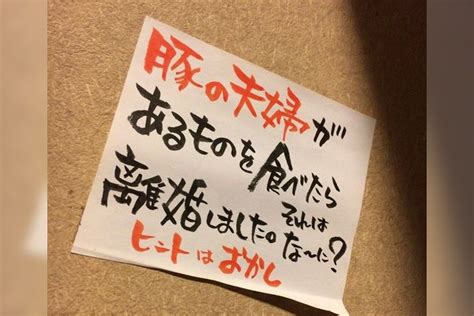 豚の夫婦が
あるものを食べたら
離婚しました。それはな〜に?
ヒントはおかし